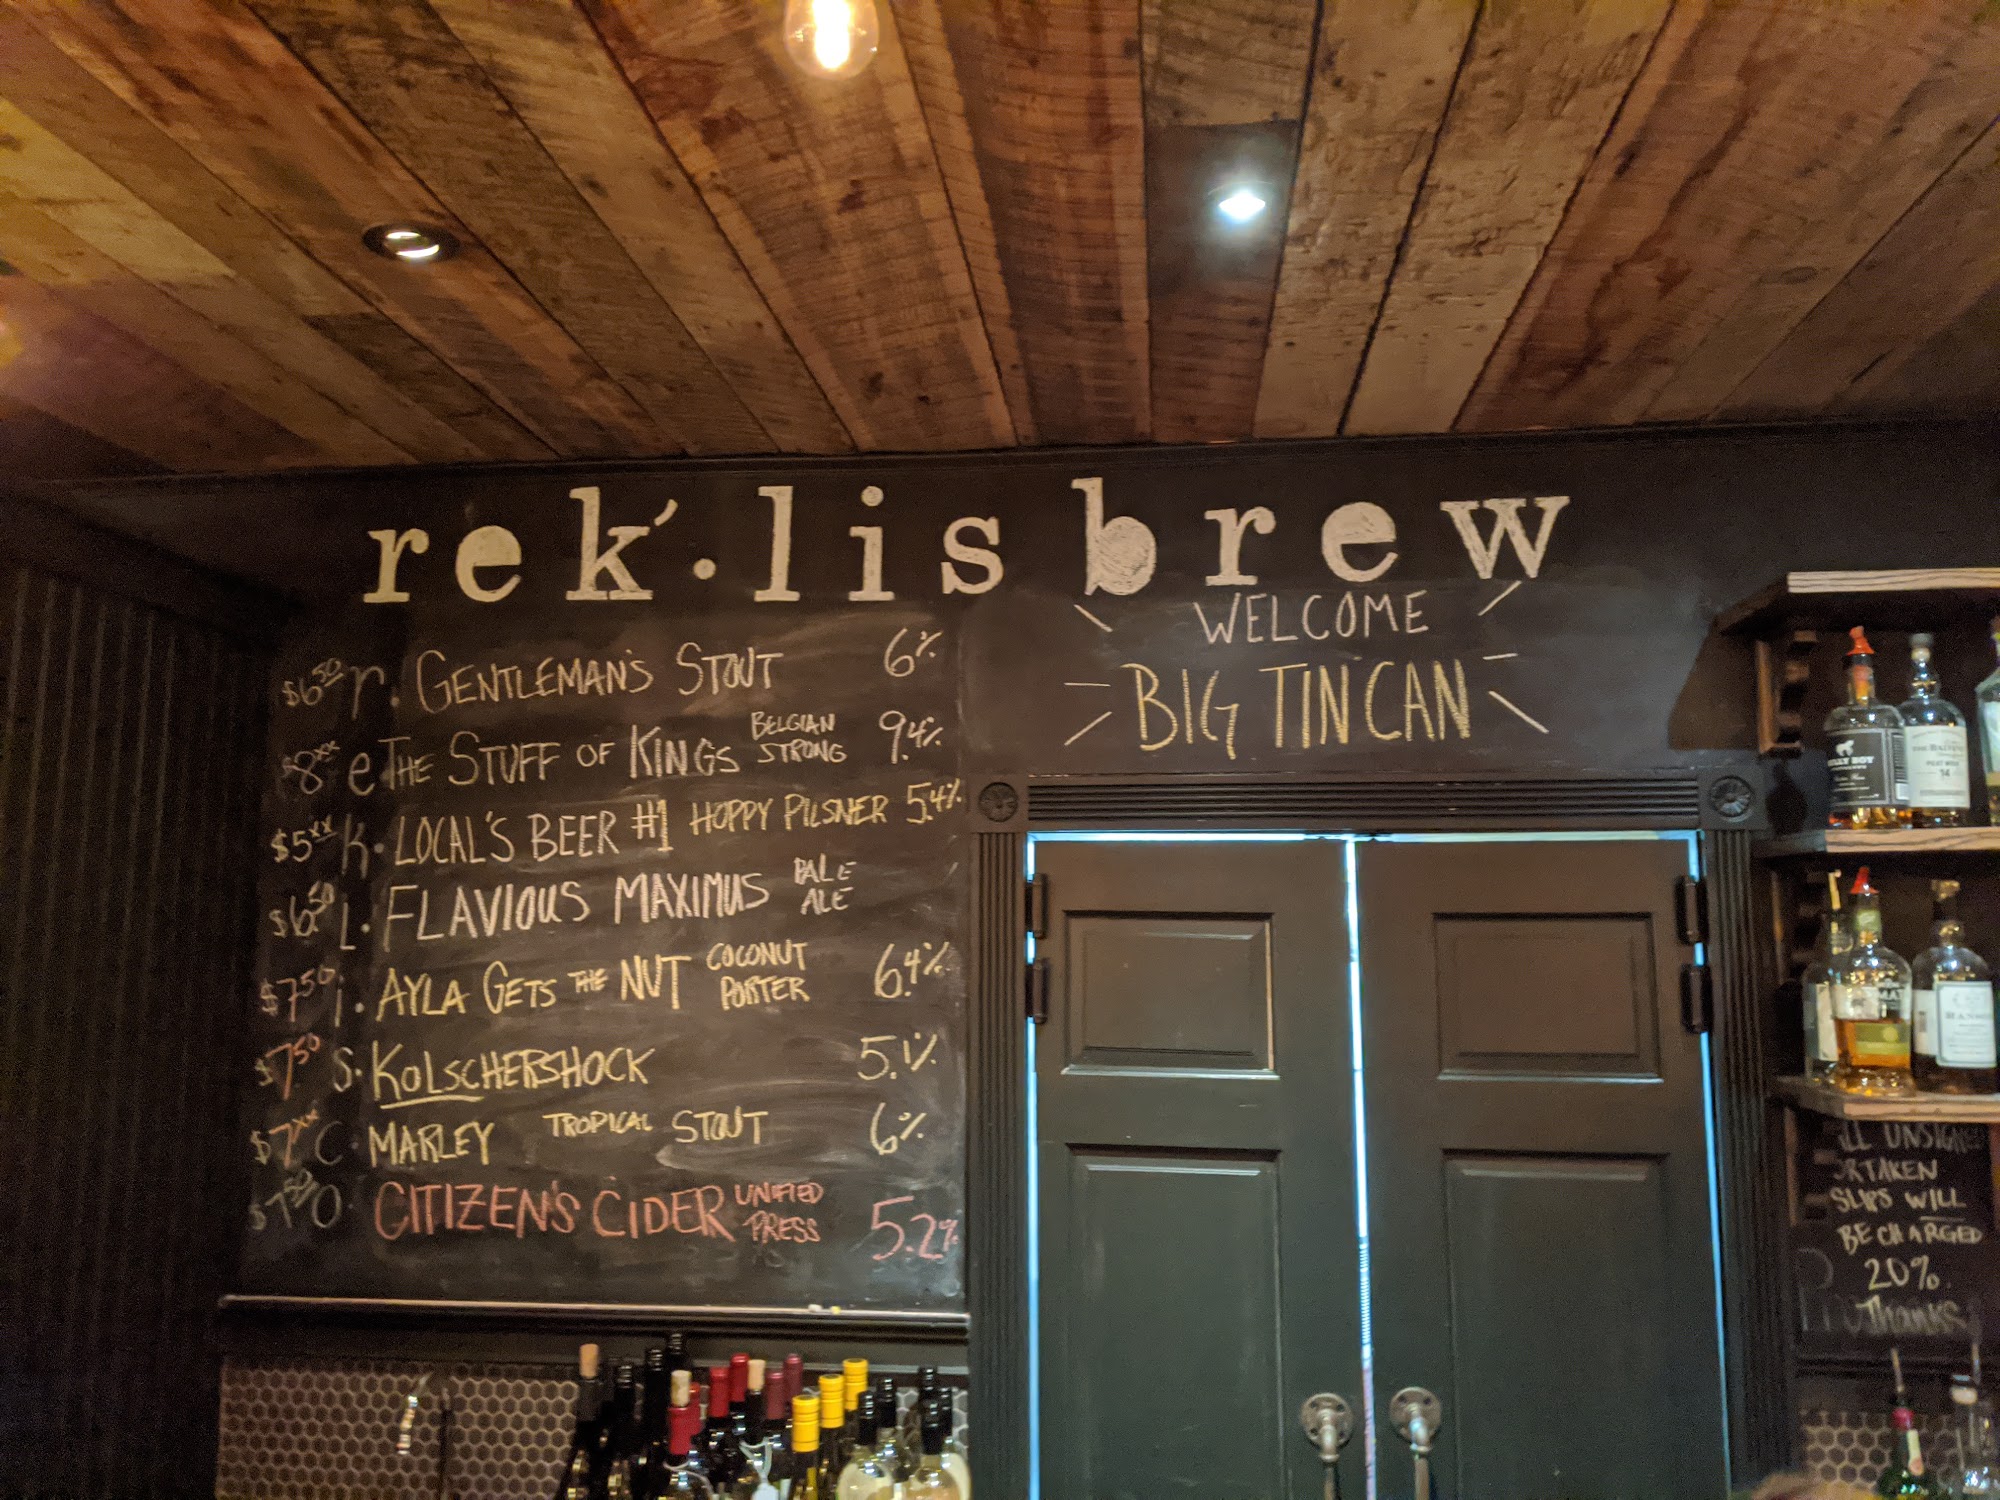 rek'·lis brew
WELCOME
BIG TIN CAN
$6.50 r. GENTLEMAN'S STOUT 6%
$8.xx e THE STUFF OF KINGS BELGIAN STRONG 9.4%
$5.xx K. LOCAL'S BEER #1 HOPPY PILSNER 5.4%
$6.50 L. FLAVIOUS MAXIMUS PALE ALE
$7.50 i. AYLA GETS THE NUT COCONUT PORTER 6.4%
$7.50 S. KOLSCHERSHOCK 5.1%
$7.xx C. MARLEY TROPICAL STOUT 6%
$7.50 O. CITIZEN'S CIDER UNIFIED PRESS 5.2%
THE BALVENIE
14
ALL UNSIGNED
OR TAKEN
SLIPS WILL
BE CHARGED
20%.
Thanks